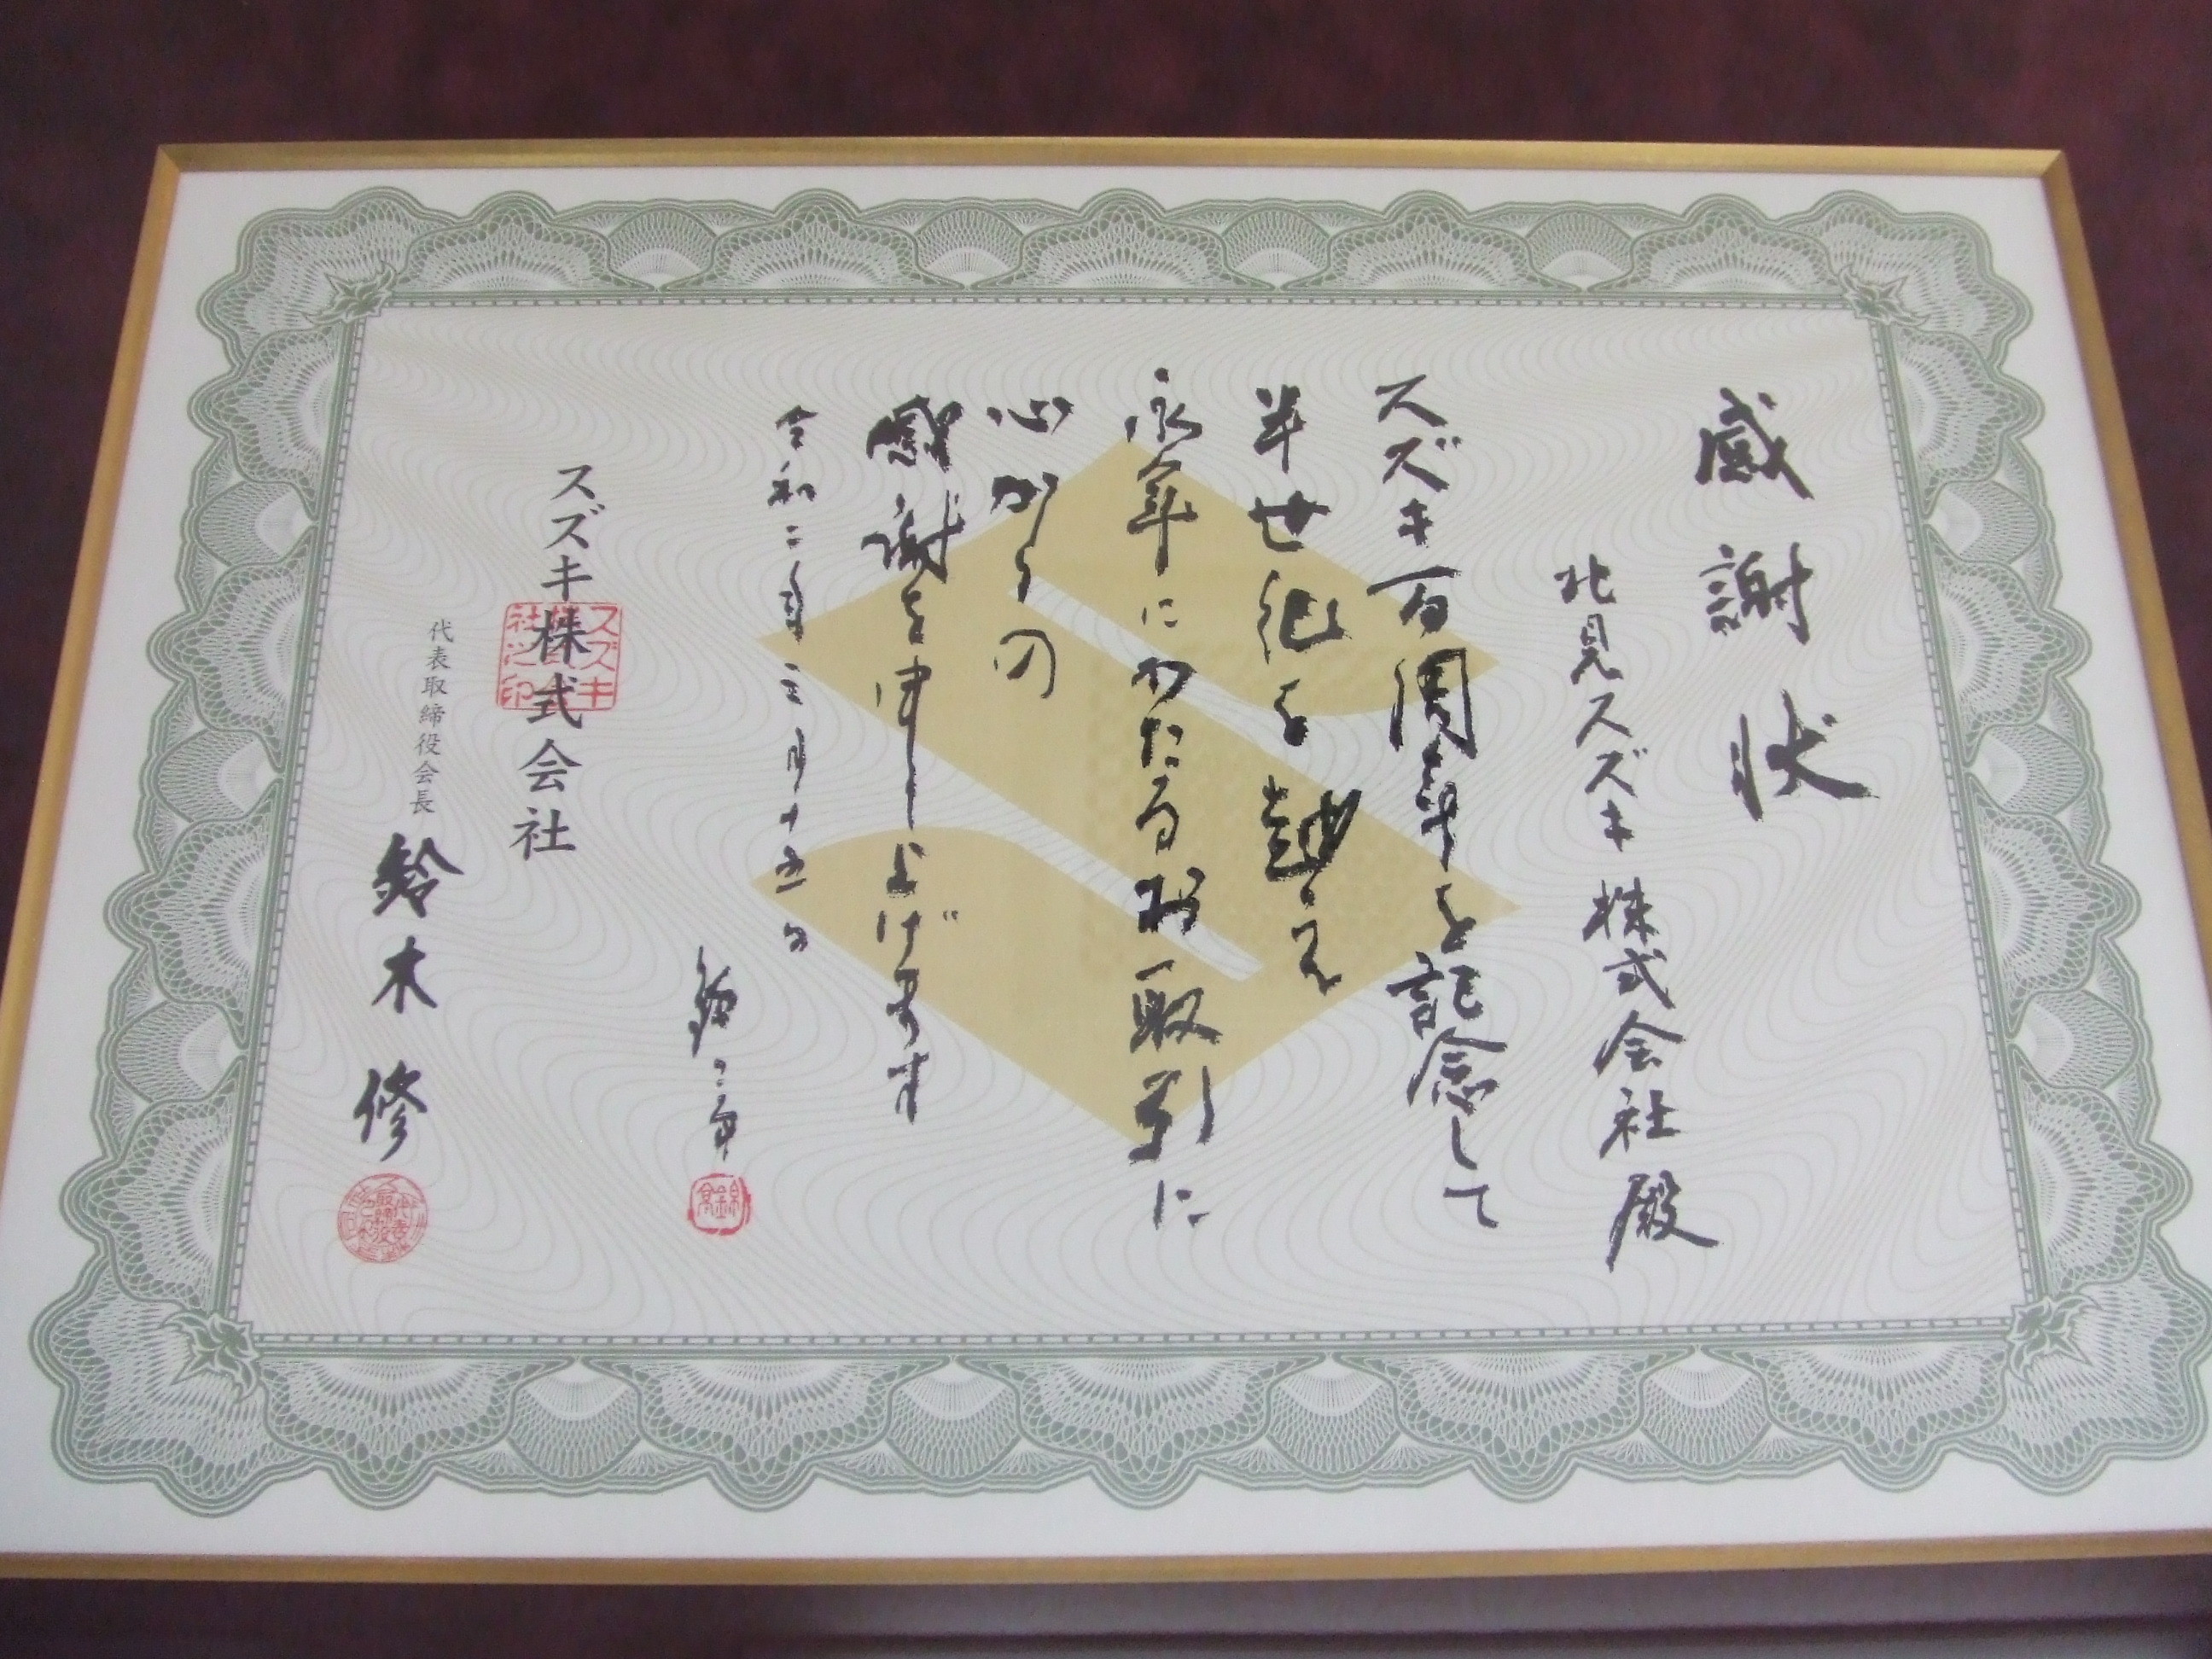 感謝状
北見スズキ株式会社殿
スズキ百周年を記念して
半世紀を越え
永年にわたるお取引に
心からの
感謝を申し上げます
令和二年三月十五日
スズキ株式会社
スズキ株式会社之印
代表取締役会長
鈴木修